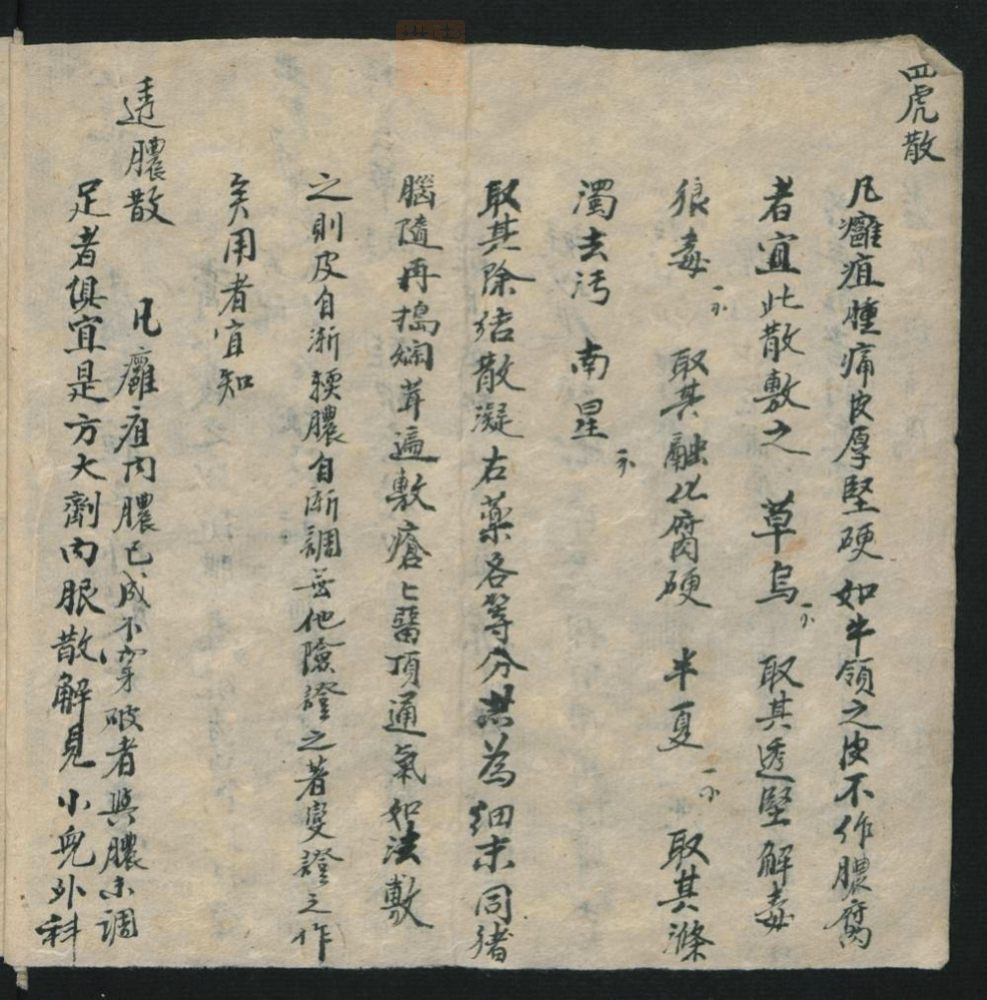 四虎散
凡癰疽腫痛皮厚堅硬如牛領之皮不作膿腐
者宜此散敷之 草烏 取其透堅解毒
狼毒 取其融化腐硬 半夏 取其滌
濁去污 南星
取其除结散凝右藥各等分共為细末同猪
腦隨再搗爛茸遍敷瘡上畱頂通氣如法敷
之則皮自漸軟膿自漸調無他險證之著變證之作
矣用者宜知
透膿散 凡癰疽内膿已成不穿破者與膿未調
足者俱宜是方大劑内服散解見小兒外科